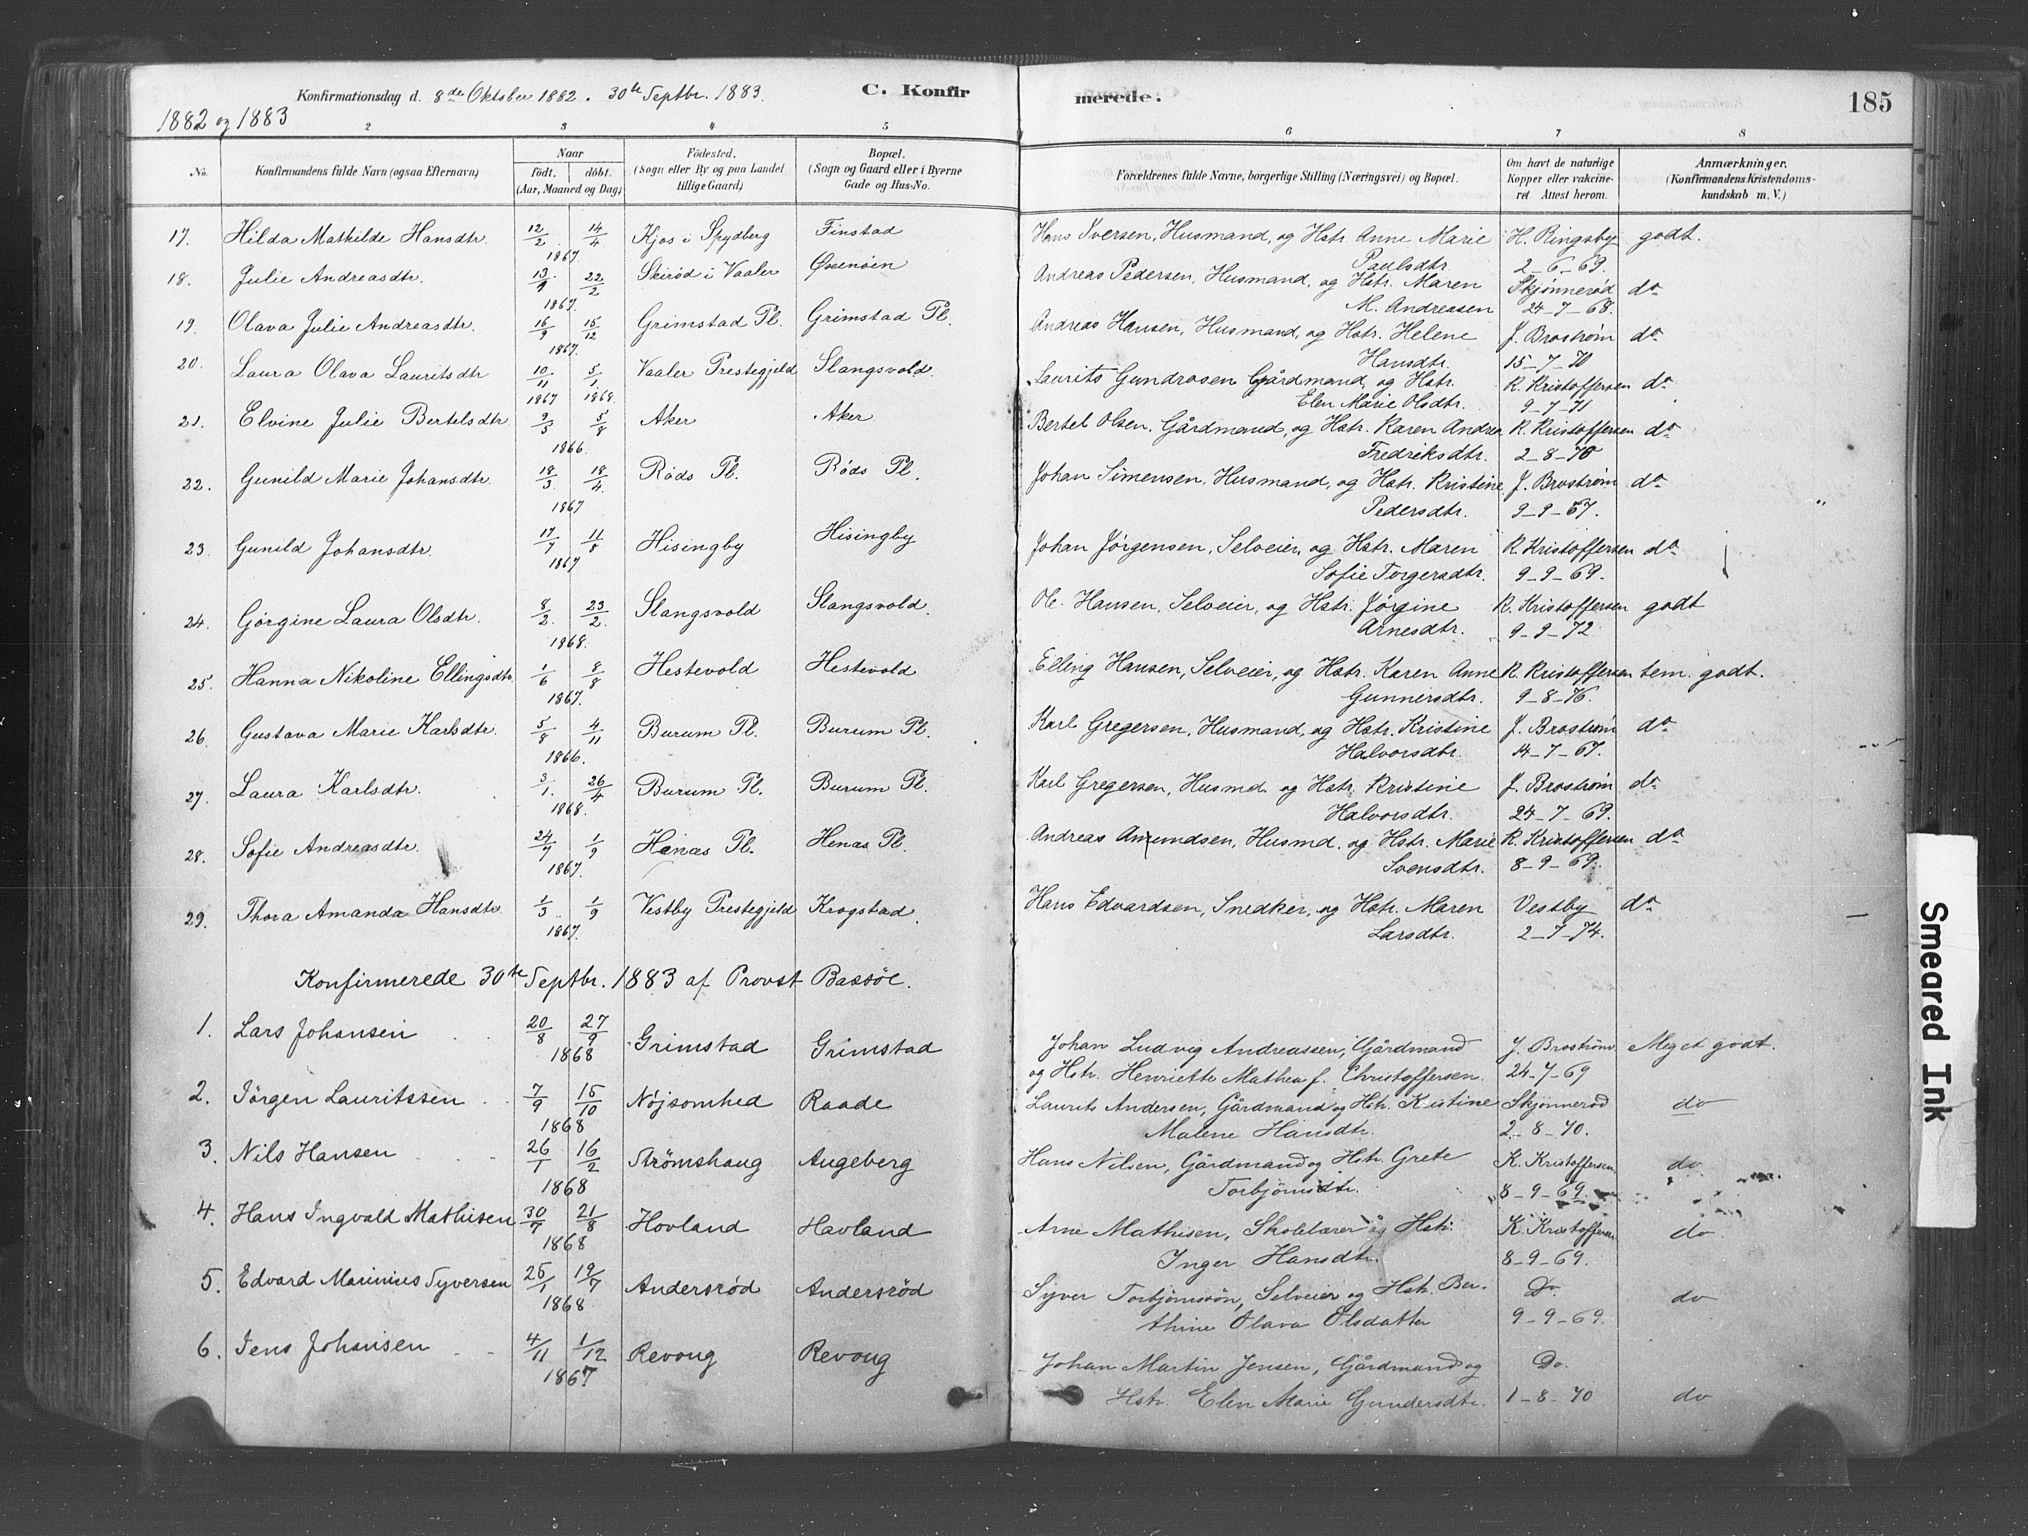 Konfirmationsdag d. 8de Oktober 1882. 30te Septbr. 1883. C. Konfir merede. 185
1882 og 1883
2 3 4 5 6 7 8
No. Konfirmandens fulde Navn (ogsaa Efternavn) Naar födt. döbt. (Aar, Maaned og Dag) Födested. (Sogn eller By og paa Landet tillige Gaard) Bopæl. (Sogn og Gaard eller i Byerne Gade og Hus-No. Forældrenes fulde Navne, borgerlige Stilling (Næringsvei) og Bopæl. Om havt de naturlige Kopper eller vakcineret Attest herom. Anmærkninger. (Konfirmandens Kristendomskundskab m. V.)
17. Hilda Mathilde Hansdtr. 12/2 14/4 Kjos i Spydberg Finstad Hans Iversen, Husmand, og Hstr. Anne Marie H. Ringsby godt.
1867 Paulsdtr. 2-6-69.
18. Julie Andreasdtr. 13/9 22/2 Skiröd i Vaaler Øxenøen Andreas Pedersen, Husmand, og Hstr. Maren Skjønnerød do
1867. M. Andreasen 24-7-68.
19. Olava Julie Andreasdtr. 16/9 15/12 Grimstad Pl. Grimstad Pl. Andreas Hansen, Husmand, og Hstr. Helene J. Broström do
1867. Hansdtr. 15-7-70
20. Laura Olava Lauritsdtr 10/11 5/1 Vaaler Prestegjeld Slangsvold. Laurits Gundrosen Gårdmand, og Hstr. K. Kristoffersen do
1867 1868. Elen Marie Olsdtr. 9-7-71
21. Elvine Julie Bertelsdtr. 9/3 5/8 Aker Aker Bertel Olsen, Gårdmand, og Hstr. Karen Andrea K. Kristoffersen do
1866. Fredriksdtr. 2-8-70
22. Gunild Marie Johansdtr. 18/3 18/4 Röds Pl. Röds Pl. Johan Simensen, Husmand, og Hstr. Kristine J. Broström do
1867 Pedersdtr. 9-9-67.
23. Gunild Johansdtr. 17/7 11/8 Hisingby Hisingby Johan Jörgensen, Selveier, og Hstr. Maren K. Kristoffersen do
1867 Sofie Torgersdtr. 9-9-69.
24. Görgine Laura Olsdtr. 8/2. 23/2. Slangsvold Slangsvold. Ole Hansen, Selveier, og Hstr. Jörgine K. Kristoffersen godt
1868. Arnesdtr. 9-9-72
25. Hanna Nikoline Ellingsdtr. 1/6 8/8 Hestevold Hestevold Elling Hansen, Selveier, og Hstr. Karen Anne K. Kristoffersen tem. godt.
1867. Gunnersdtr. 9-8-76.
26. Gustava Marie Karlsdtr. 5/8 4/11 Burum Pl. Burum Pl. Karl Gregersen, Husmand, og Hstr. Kristine J. Broström do
1866. Halvorsdtr. 14-7-67.
27. Laura Karlsdtr. 3/1. 26/4 Burum Pl. Burum Pl. Karl Gregersen, Husmd. og Hstr. Kristine J. Broström do
1868. Halvorsdtr. 24-7-69.
28. Sofie Andreasdtr. 24/7 1/9 Henæs Pl. Henæs Pl. Andreas Amundsen, Husmd. og Hstr. Marie K. Kristoffersen do
1867. Svensdtr. 8-9-69.
29. Thora Amanda Hansdtr 1/3 1/9 Vestby Prestegjeld Krogstad. Hans Edvardsen, Snedker, og Hstr. Maren Vestby do
1867. Larsdtr. 2-7-74.
Konfirmerede 30te Septbr. 1883 af Provst Bassöe.
1. Lars Johansen 20/8 27/9 Grimstad Grimstad Johan Ludvig Andreassen, Gårdmand J. Broström Meget godt.
1868 og Hstr. Henriette Mathea f. Christoffersen. 24-7-69
2. Jörgen Lauritssen 7/9 15/10 Nöjsomhed Raade Laurits Andersen, Gårdmand og Hstr. Kristine Skjønneröd do
1868 Malene Hansdtr. 2-8-70.
3. Nils Hansen 26/1 16/2 Strömshaug Augeberg Hans Nilsen, Gårdmand og Hstr. Grete K. Kristoffersen do
1868 Torbjörnsdtr. 8-9-69.
4. Hans Ingvald Mathisen 30/7 21/8 Hovland Havland Arne Mathisen, Skolelærer og Hstr. K. Kristoffersen do
1868 Inger Hansdtr. 8-9-69.
5. Edvard Marinius Syversen 25/1 19/7 Anderseröd Anderseröd Syver Torbjörnssön, Selveier og Hstr. Ber- Do. do
1868 thine Olava Olsdatter 9-9-69.
6. Jens Johansen 4/11 1/12 Revoug Revoug Johan Martin Jensen, Gårdmand og Do.
1867 Hstr Elen Marie Gundersdtr. 1-8-70 do
Smeared Ink